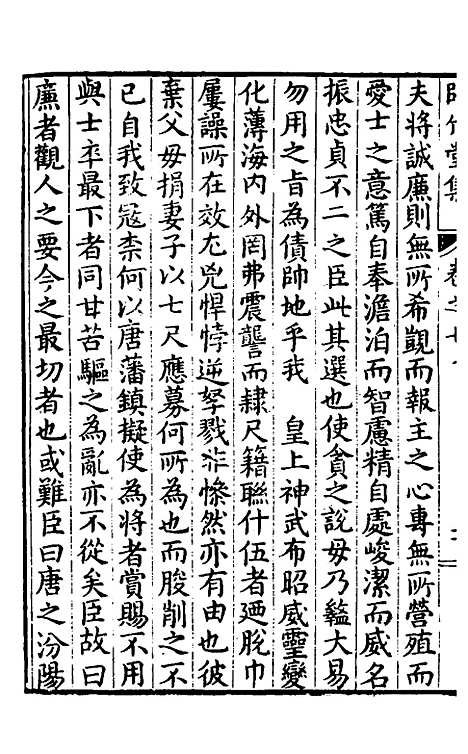 夫將誠廉則無所希覬而報主之心專無所營殖而
愛士之意篤自奉澹泊而智慮精自處峻潔而威名
振忠貞不二之臣此其選也使貪之說毋乃盭大易
勿用之旨為債帥地乎我　皇上神武布昭威靈變
化薄海內外罔弗震讋而隸尺籍聯什伍者廼脫巾
屢譟所在效尤兇悍悖逆孥戮非慘然亦有由也彼
棄父毋捐妻子以七尺應募何所為也而朘削之不
已自我致冦柰何以唐藩鎮擬使為將者賞賜不用
與士卒最下者同甘苦驅之為亂亦不從矣臣故曰
廉者觀人之要今之最切者也或難臣曰唐之汾陽